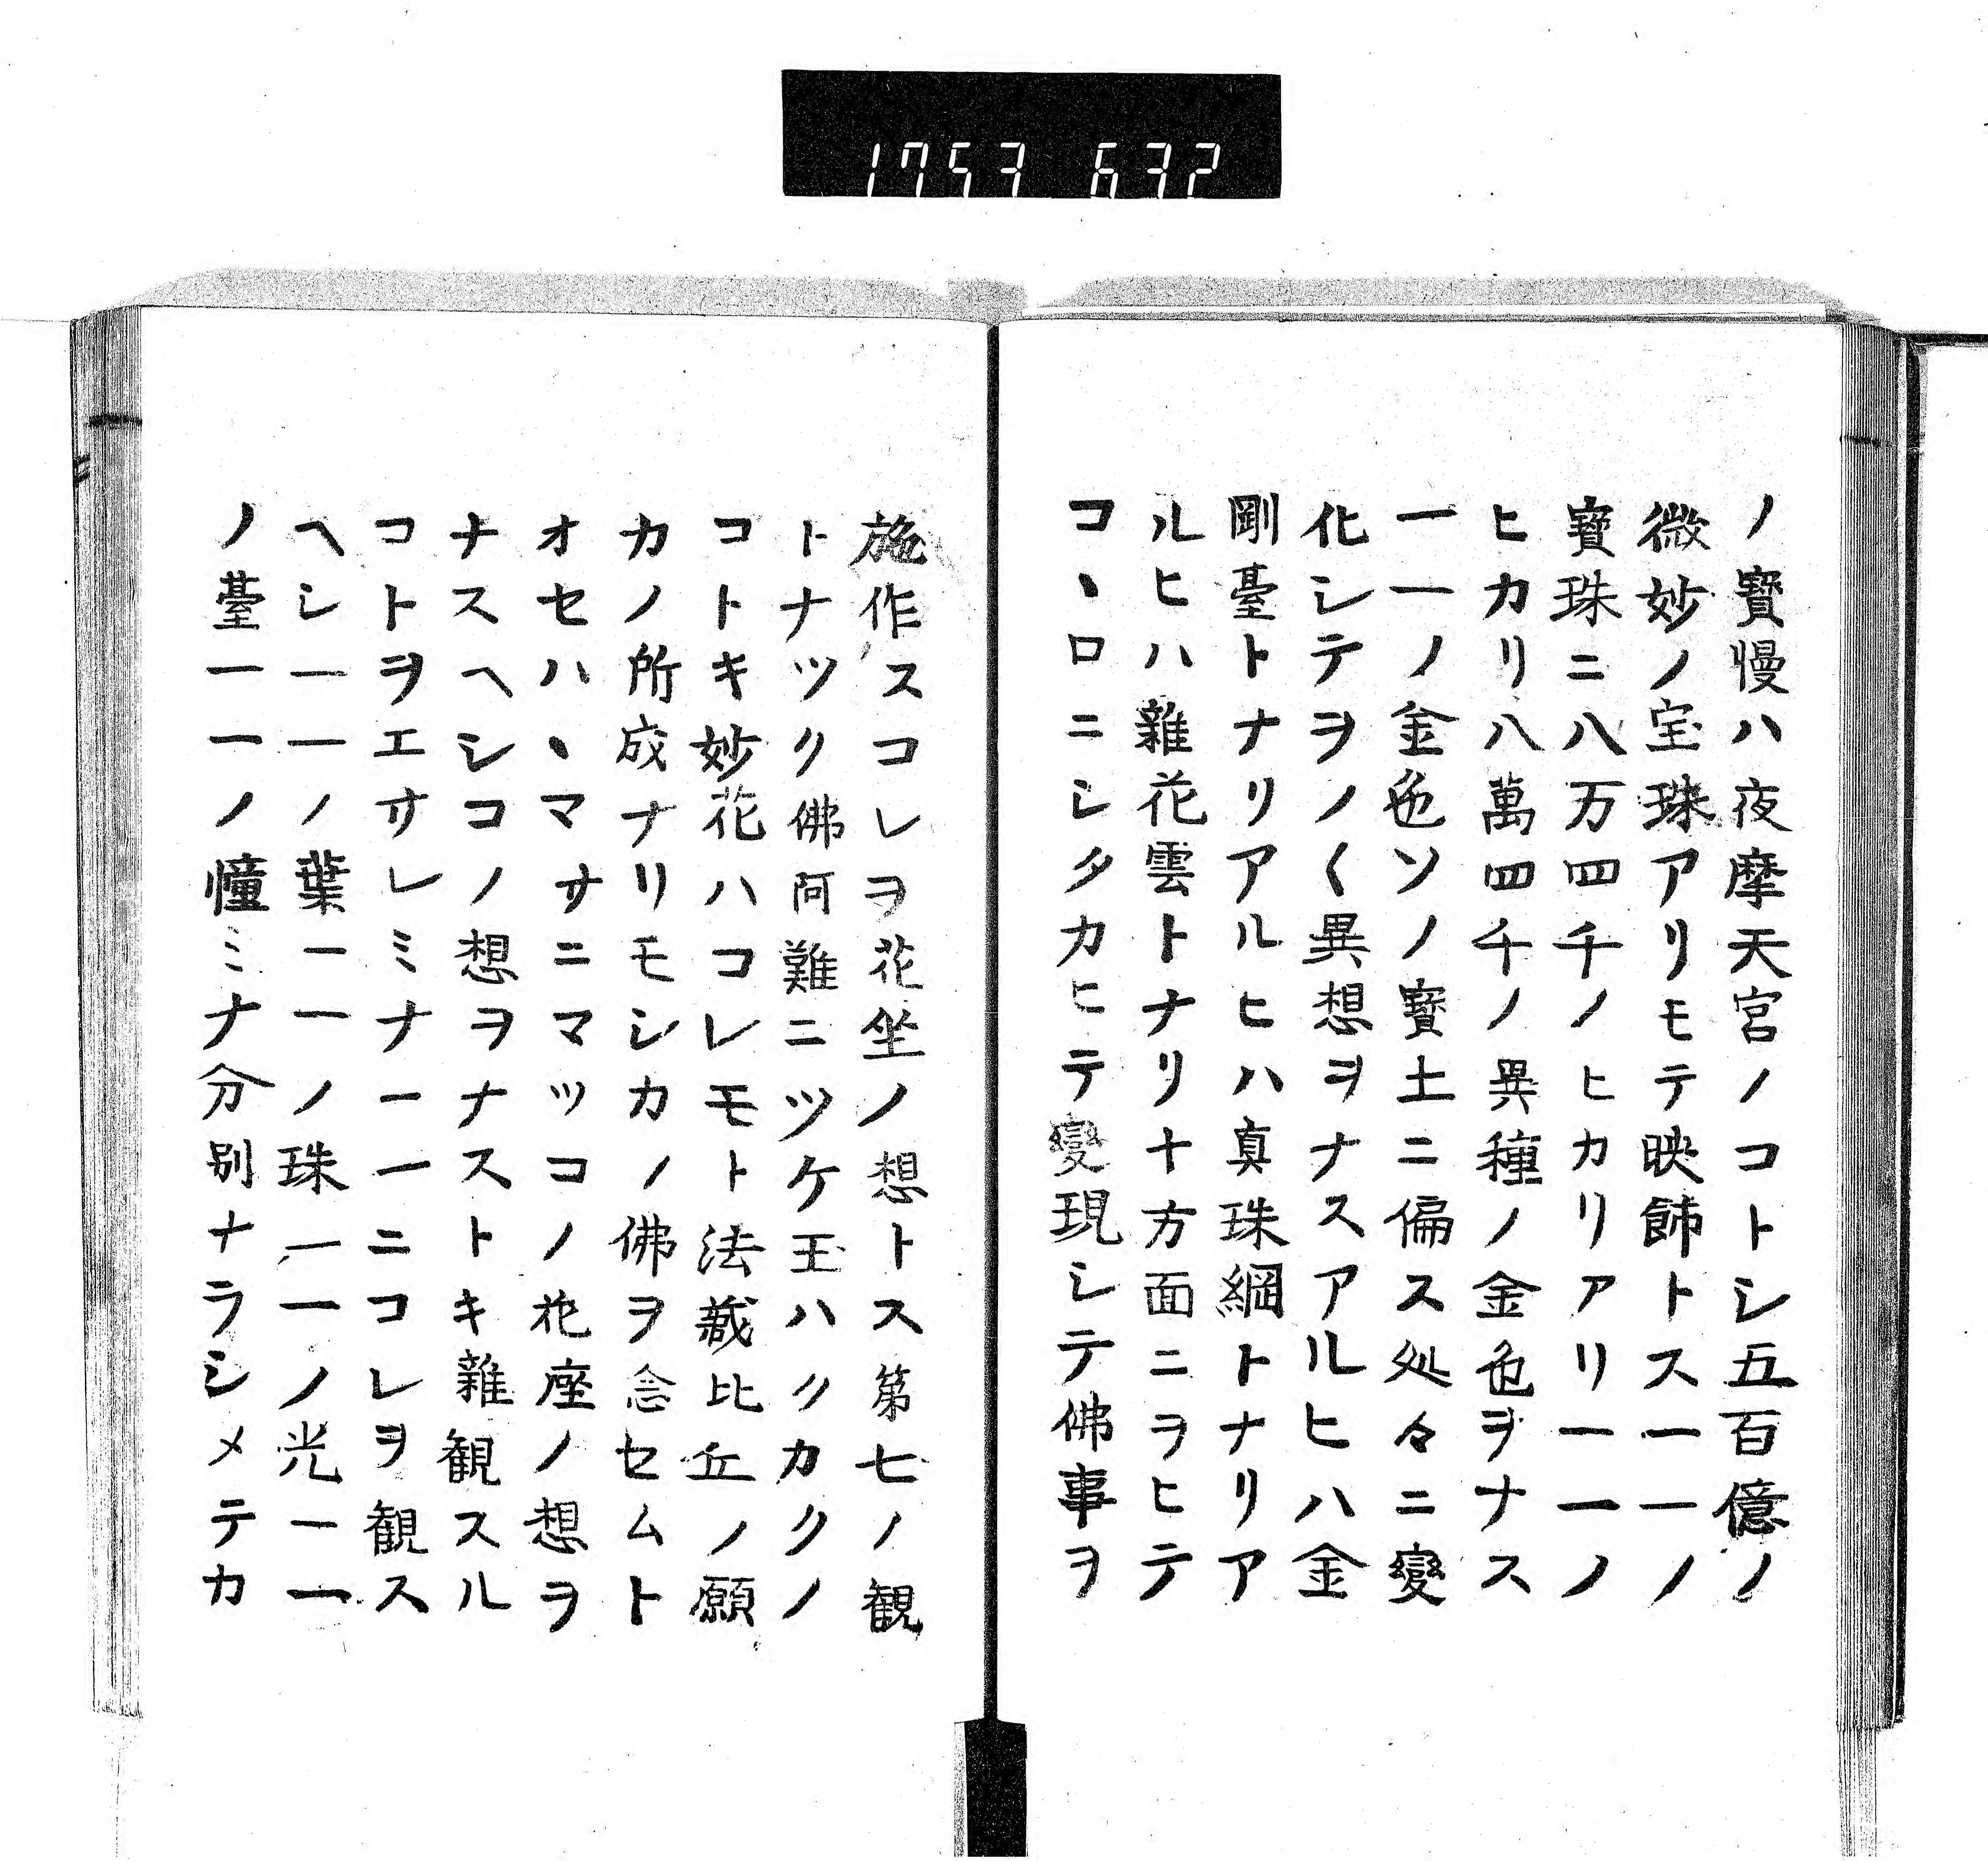 1753 632
ノ寳慢ハ夜摩天宮ノコトシ五百億ノ
微妙ノ宝珠アリモテ映飾トス一一ノ
寳珠ニ八万四千ノヒカリアリ一一ノ
ヒカリ八萬四千ノ異種ノ金色ヲナス
一一ノ金色ソノ寳土ニ徧ス処々ニ變
化シテヲノ〱異想ヲナスアルヒハ金
剛臺トナリアルヒハ真珠網トナリア
ルヒハ雜花雲トナリ十方面ニヲヒテ
コヽロニシタカヒテ變現シテ佛事ヲ
施作スコレヲ花坐ノ想トス第七ノ観
トナツク佛阿難ニツケ玉ハクカクノ
コトキ妙花ハコレモト法蔵比丘ノ願
カノ所成ナリモシカノ佛ヲ念セムト
オセハヽマサニマツコノ花座ノ想ヲ
ナスヘシコノ想ヲナストキ雜観スル
コトヲエサレミナ一一ニコレヲ観ス
ヘシ一一ノ葉一一ノ珠一一ノ光一一
ノ臺一一ノ幢ミナ分別ナラシメテカ